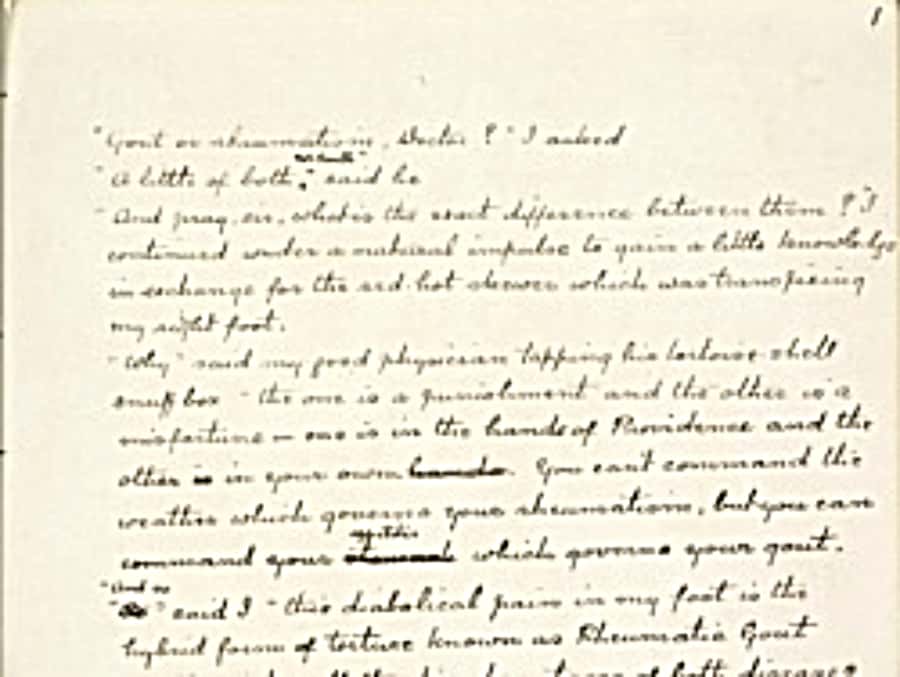 1
"Gout or rheumatism, Doctor?" I asked
"A little of both," said he
"And pray, sir, what is the exact difference between them?" I
continued under a natural impulse to gain a little knowledge
in exchange for the red-hot skewer which was transfixing
my right foot.
"Why" said my good physician tapping his tortoise-shell
snuff box "the one is a punishment and the other is a
misfortune – one is in the hands of Providence and the
other is in your own hands. You can't command the
weather which governs your rheumatism, but you can
appetite
command your which governs your gout.
"And so
" said I "this diabolical pain in my foot is the
hybrid form of torture known as Rheumatic Gout
of both diseases